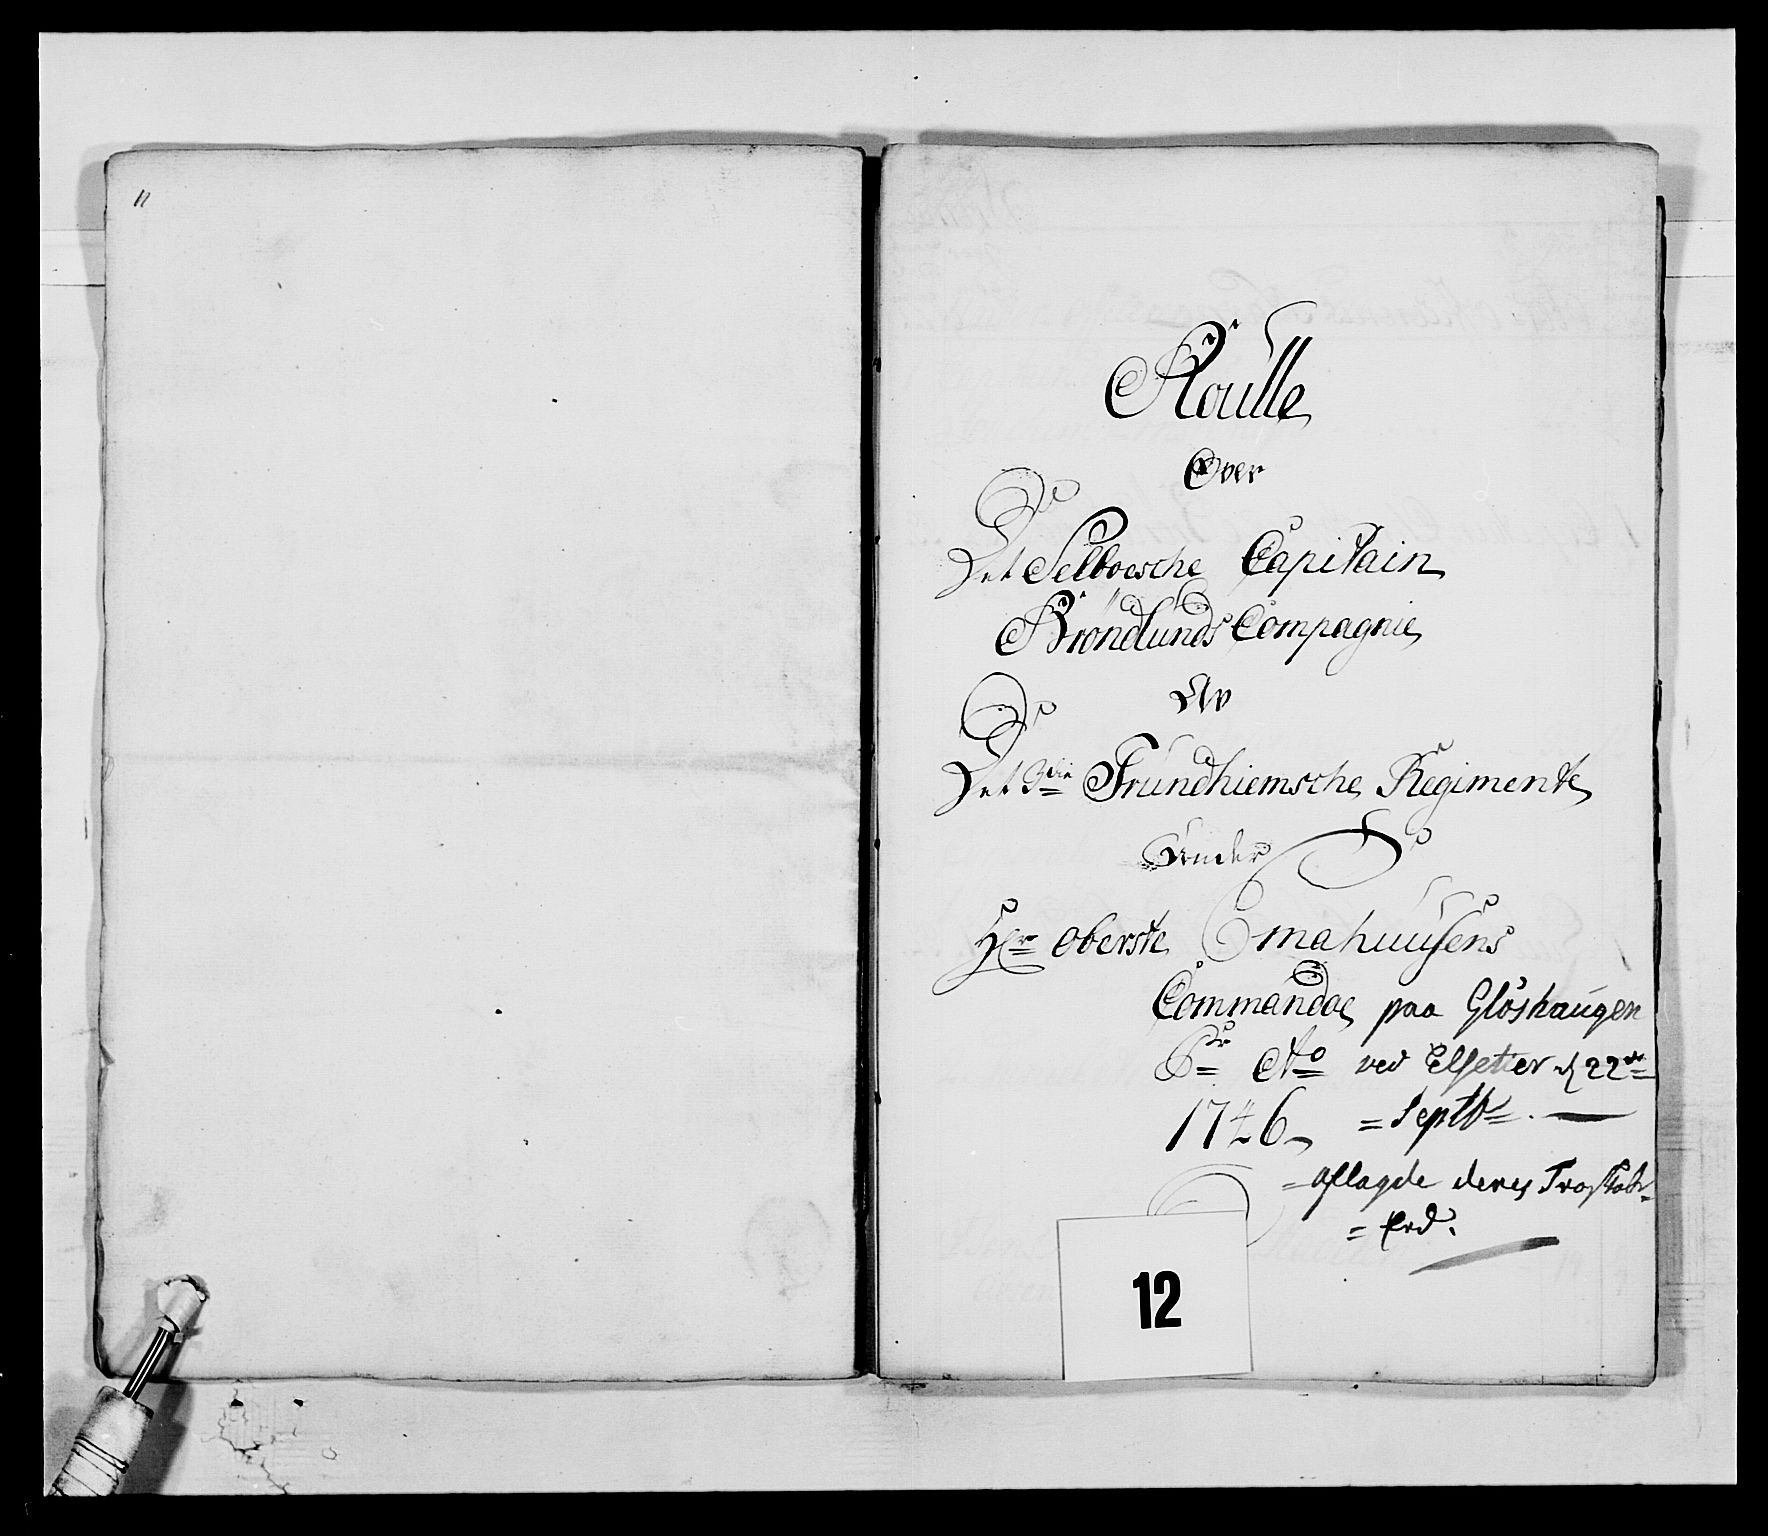 11
Roulle
Over
Det Selboesche Capitain
Bröndlunds Compagnie
Av
Det 3die Trundhiemsche Regimente
Under
Hr Oberste Emahuusens
Commandoe paa Glöshaugen
Pr Ao ved Elsetter d 22de
1746 = Septbr
= aflagde deres Troskabs-
= Eed.
12